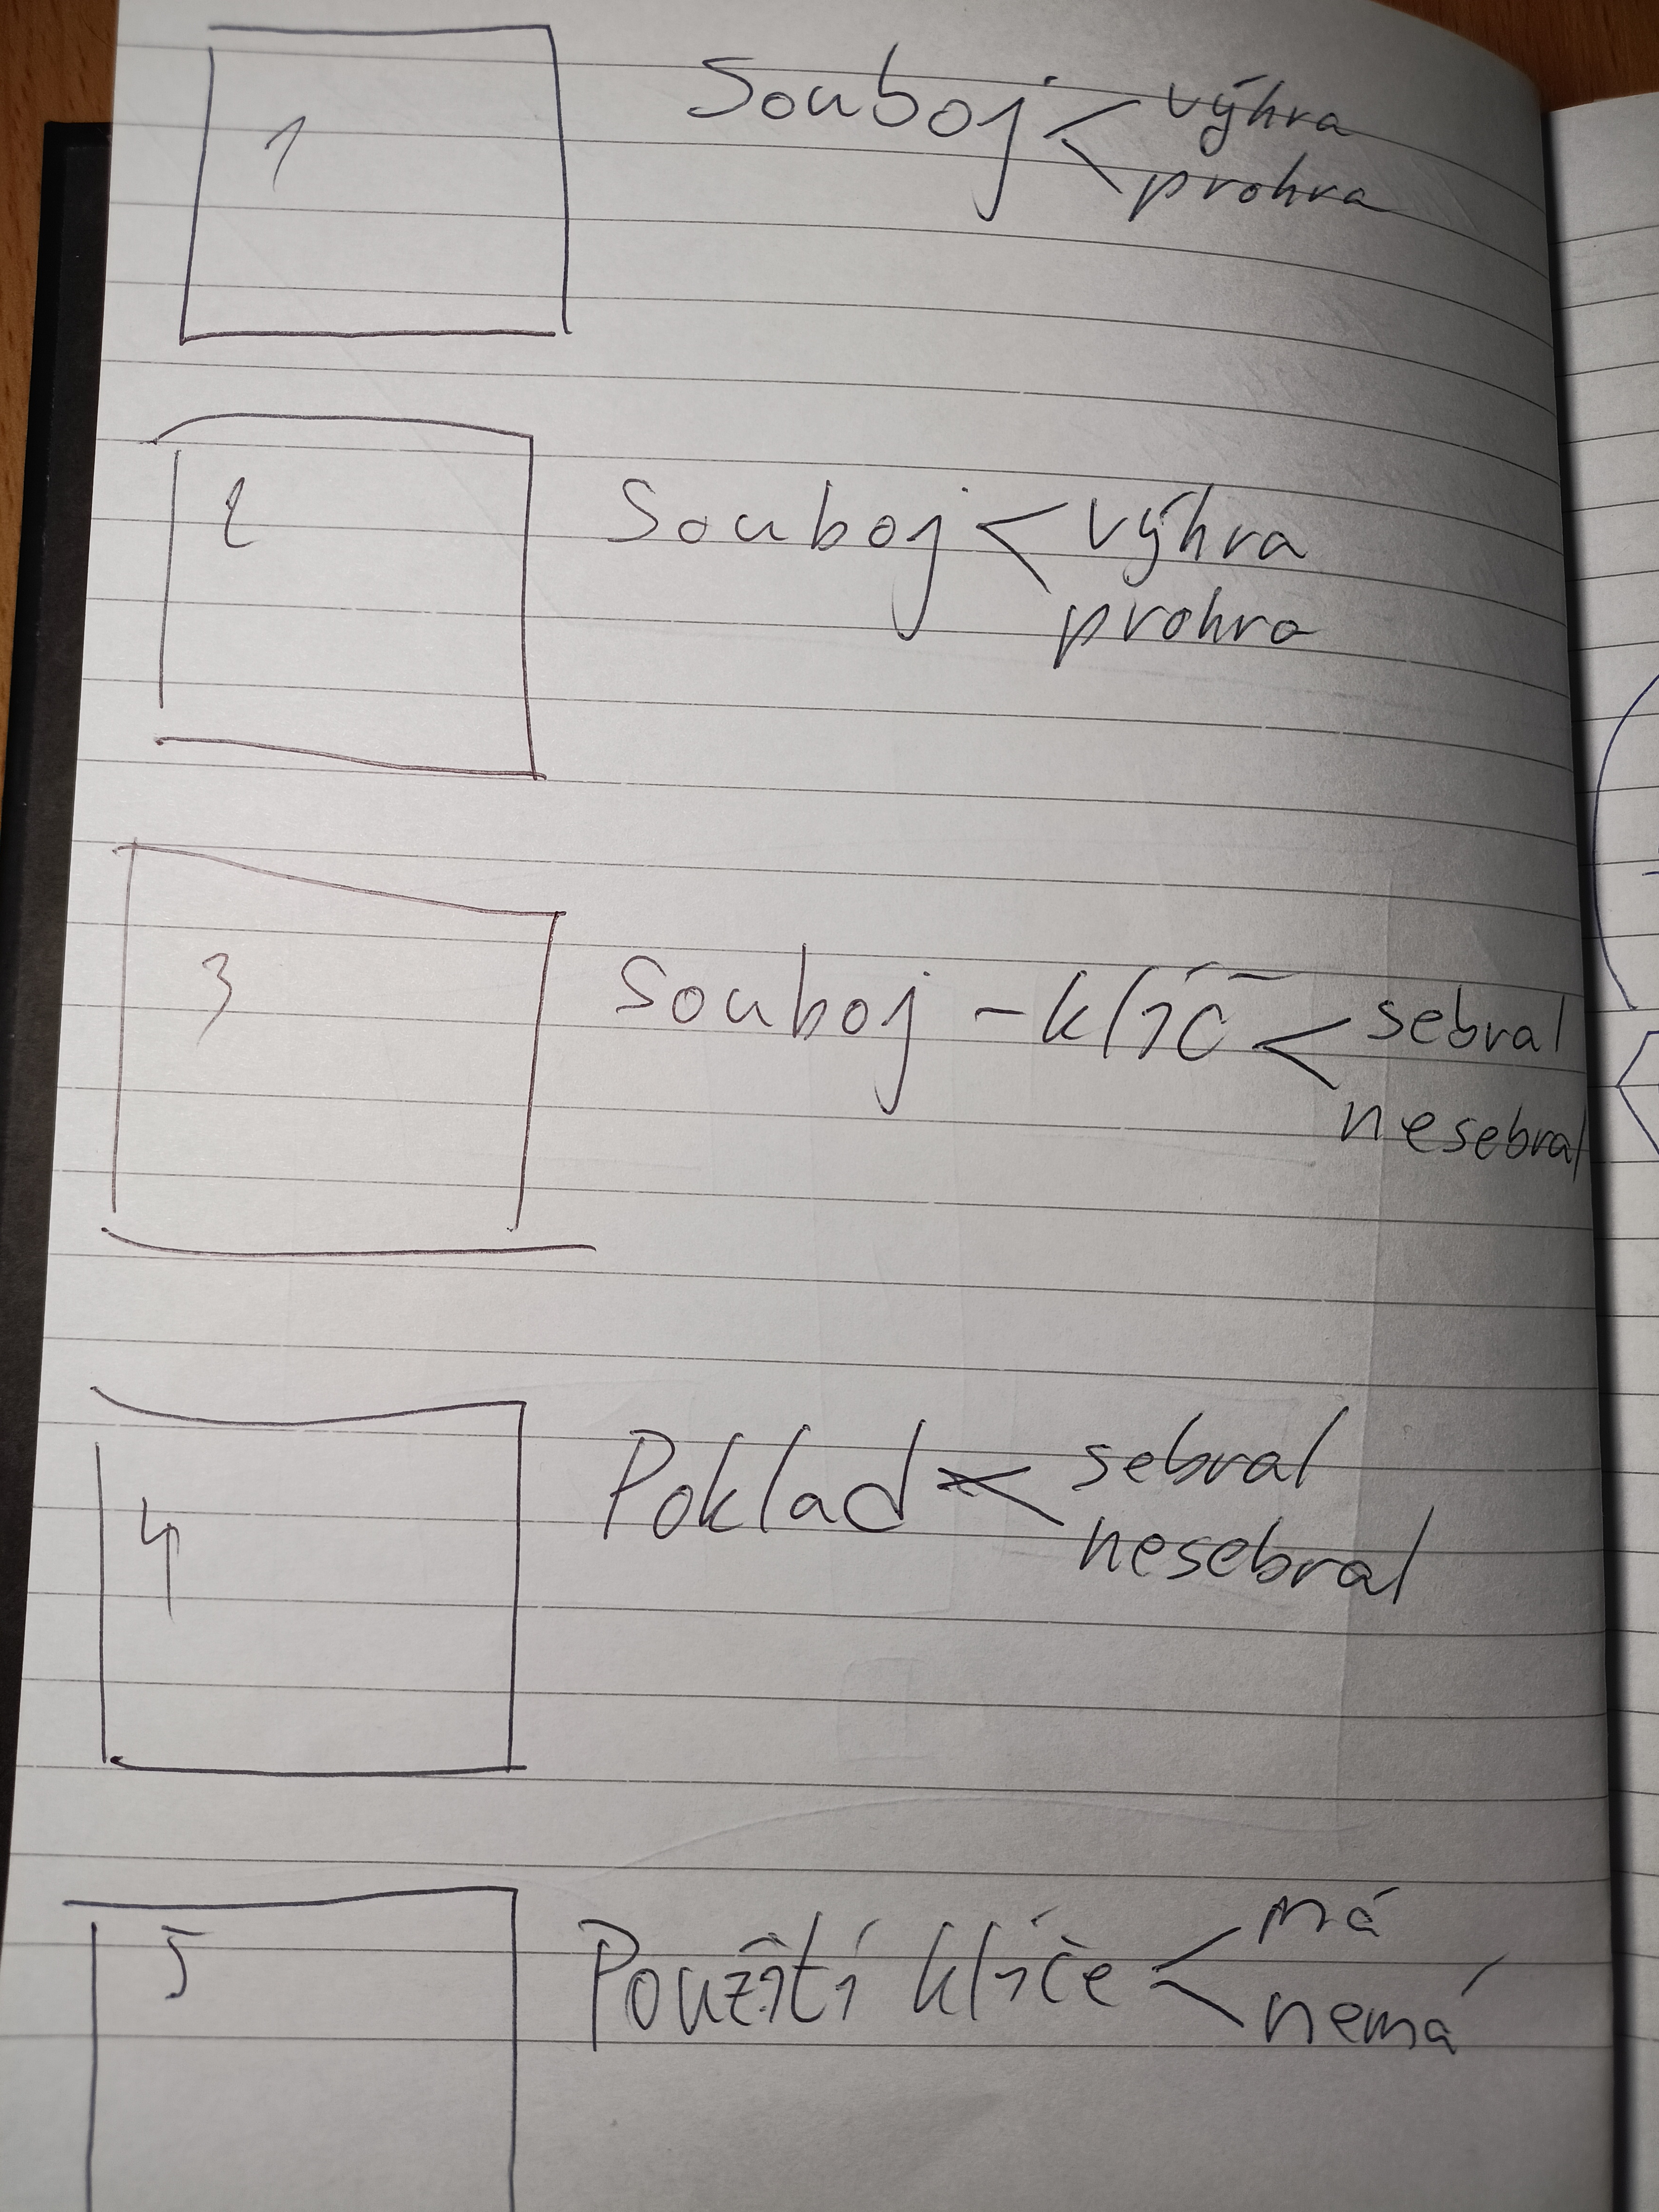 1
Souboj < výhra
prohra
2
Souboj < výhra
prohra
3
Souboj - klíč < sebral
nesebral
4
Poklad < sebral
nesebral
5
Použití klíče < má
nemá